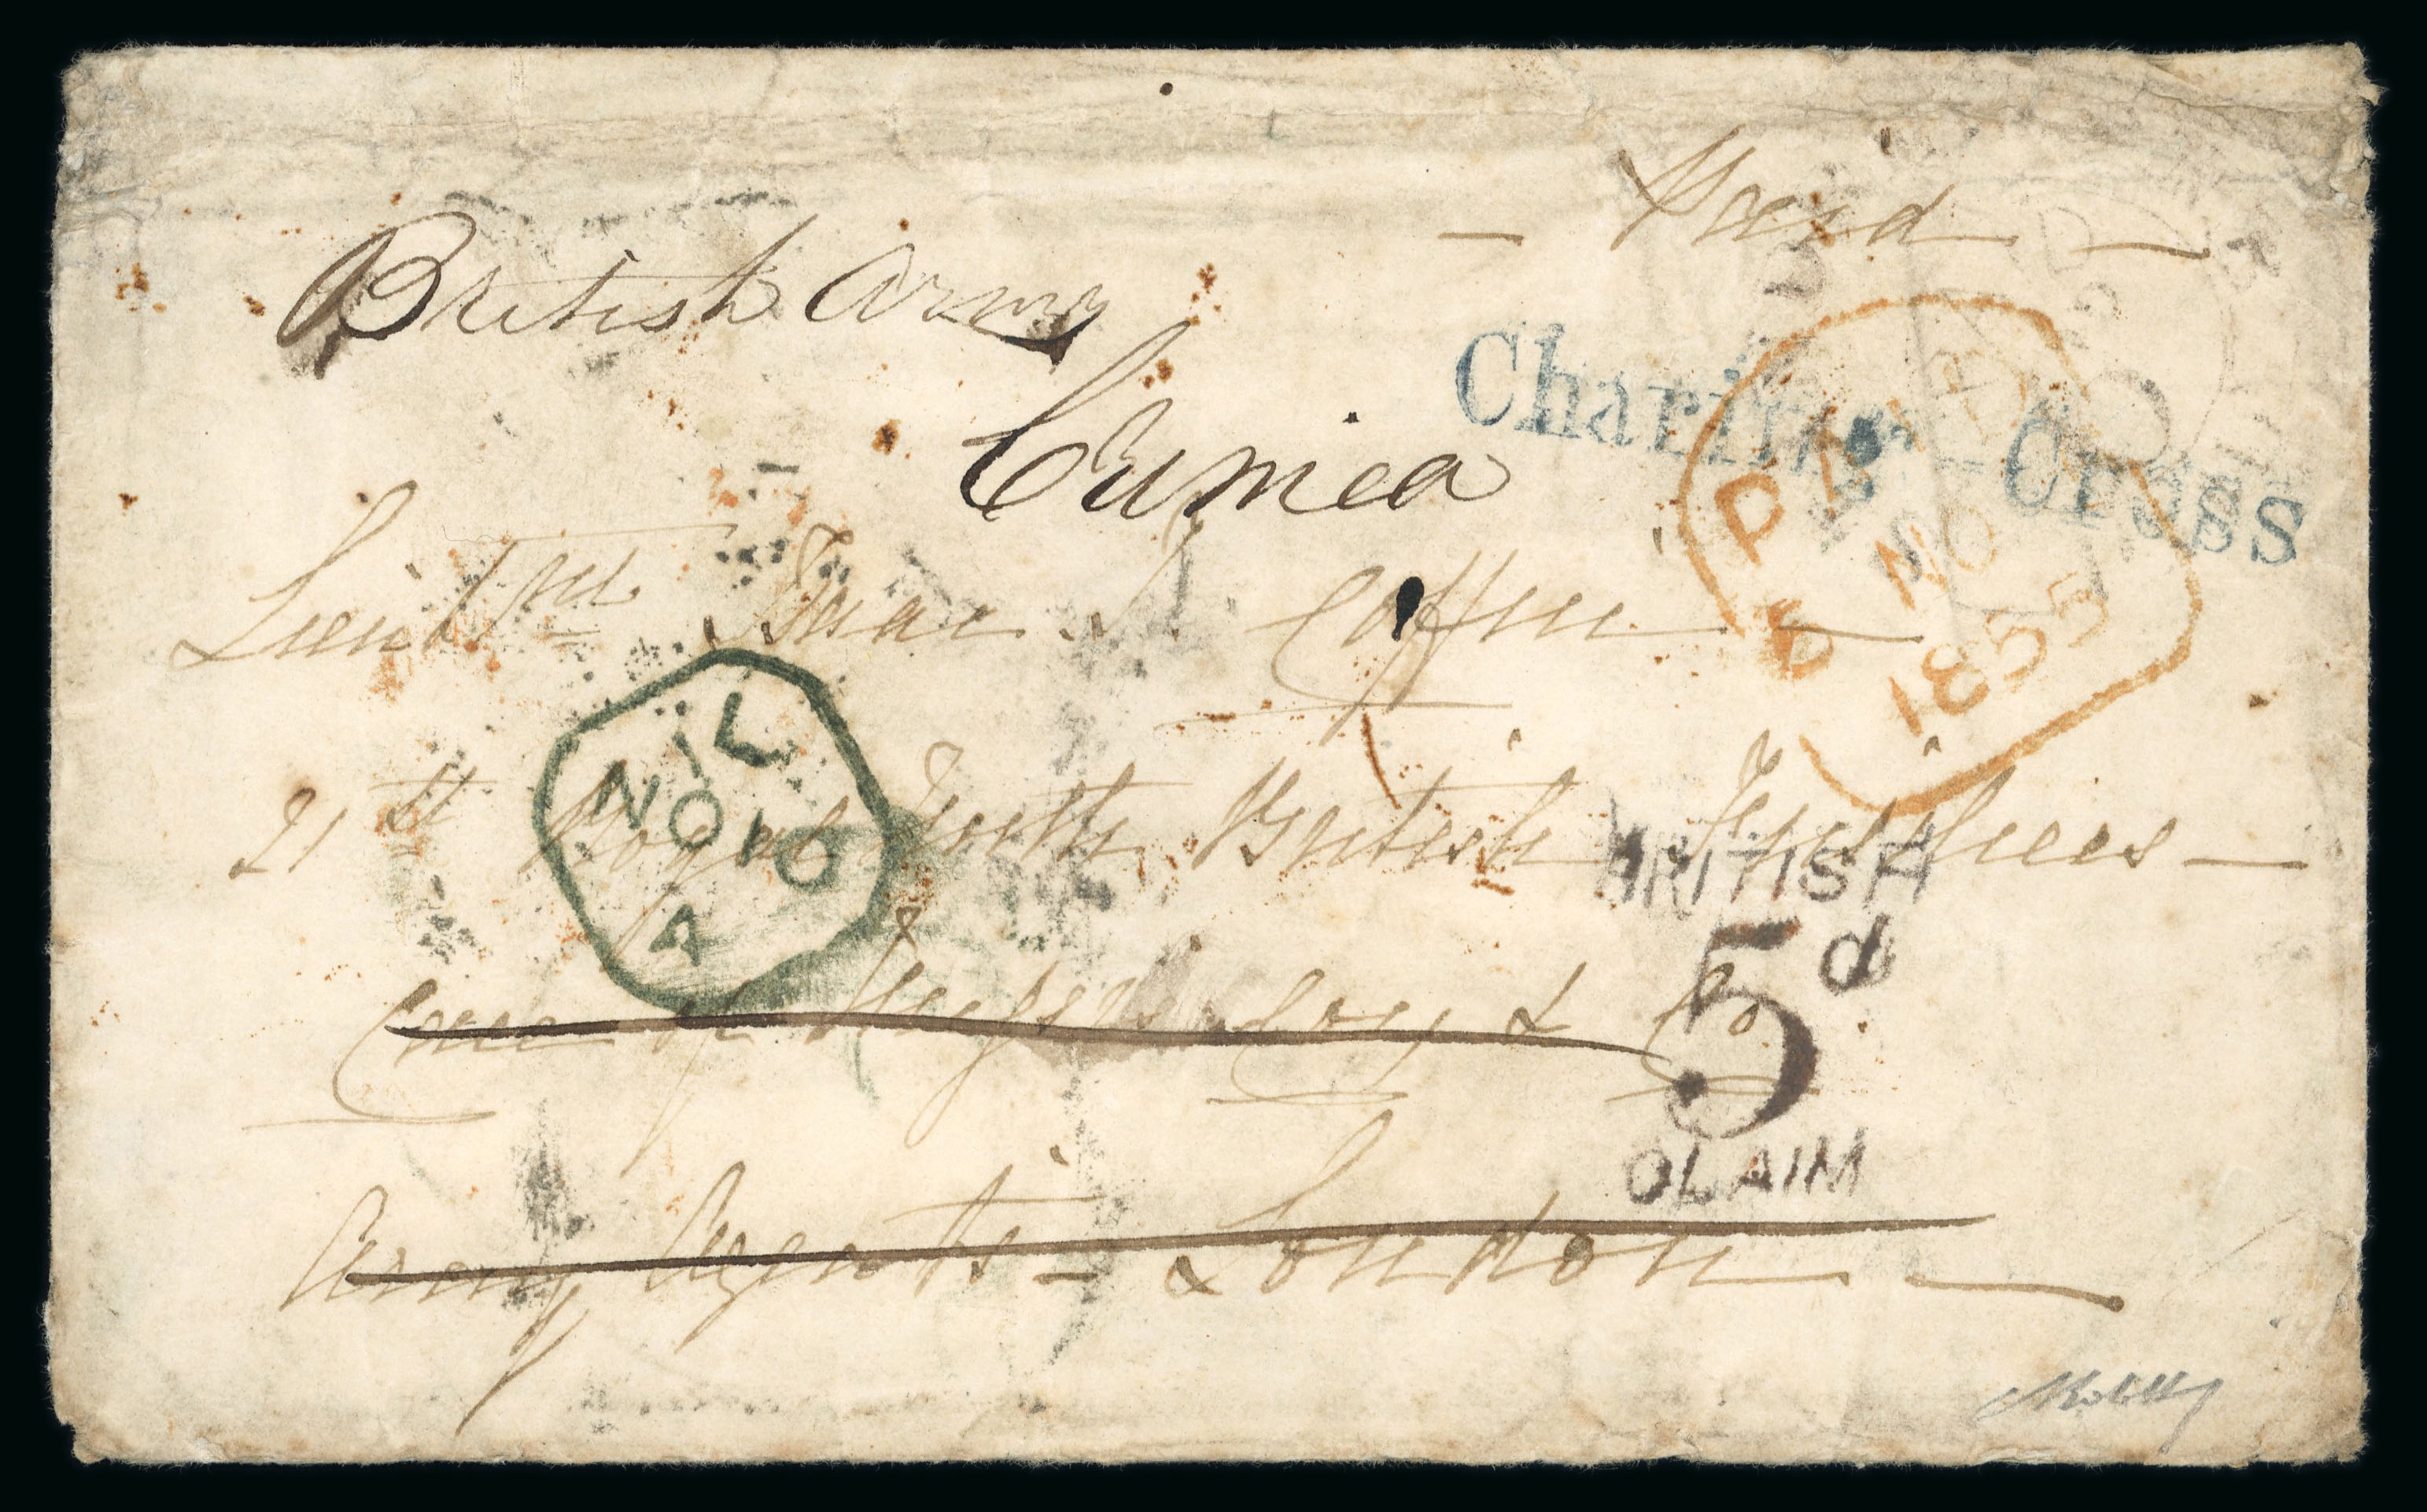 — Paid —
British Army
Crimea
Charing-Cross
PAID
NO
1855
Lieut.nt Isaac T. Coffin —
NIL
NO 10
A
21st Royal North British Fusiliers —
BRITISH
5d
CLAIM
Care of Messrs Cox & Co.
Army Agents — London —